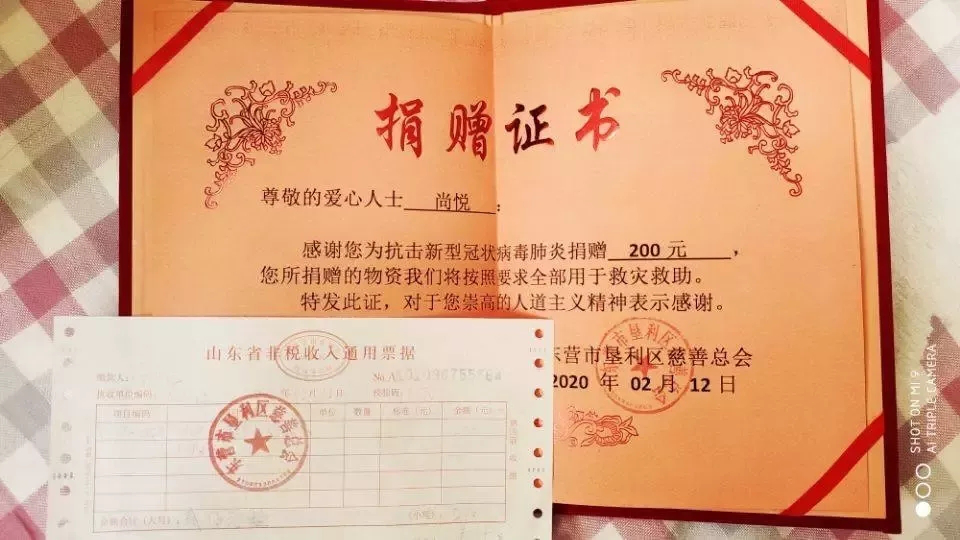 捐赠证书
尊敬的爱心人士 尚悦 :
感谢您为抗击新型冠状病毒肺炎捐赠 200 元 ,
您所捐赠的物资我们将按照要求全部用于救灾救助。
特发此证，对于您崇高的人道主义精神表示感谢。
东营市垦利区慈善总会
2020 年 02 月 12 日
山东省非税收入通用票据
缴款人:
No.A
执收单位编码:
年 月 日
校验码:
项目编码 单位 数量 标准（元） 金额（元）
东营市垦利区慈善总会
金额合计（大写）
（小写）
SHOT ON MI 9
AI TRIPLE CAMERA